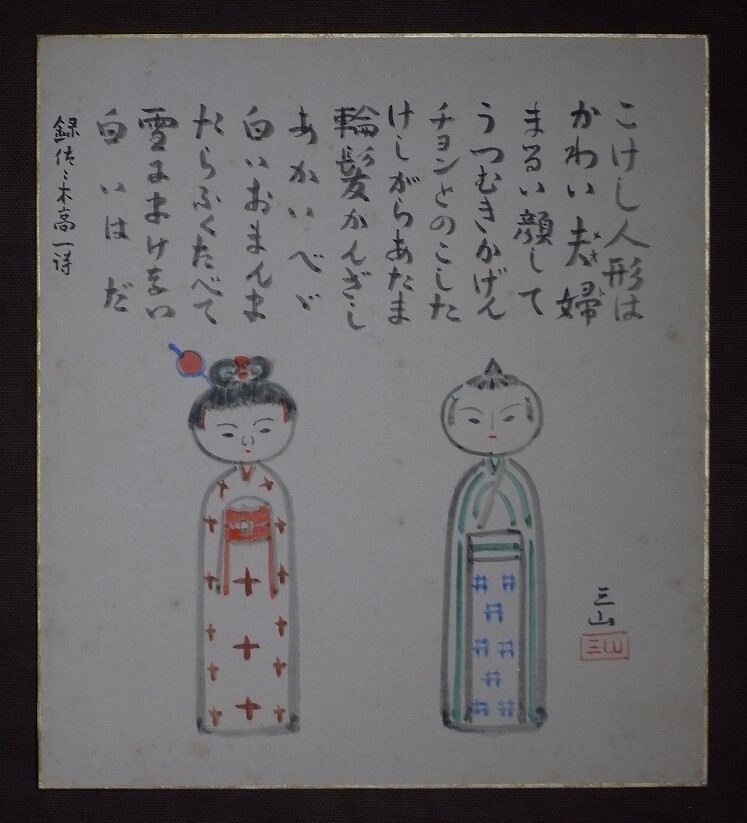 こけし人形は
かわい夫婦
めおと
まるい顔して
うつむきかげん
チョンとのこした
けしがらあたま
輪髪かんざし
あかいべゞ
白いおまんま
たらふくたべて
雪にまけない
白いはだ
録佐々木高一詩
三山
三山